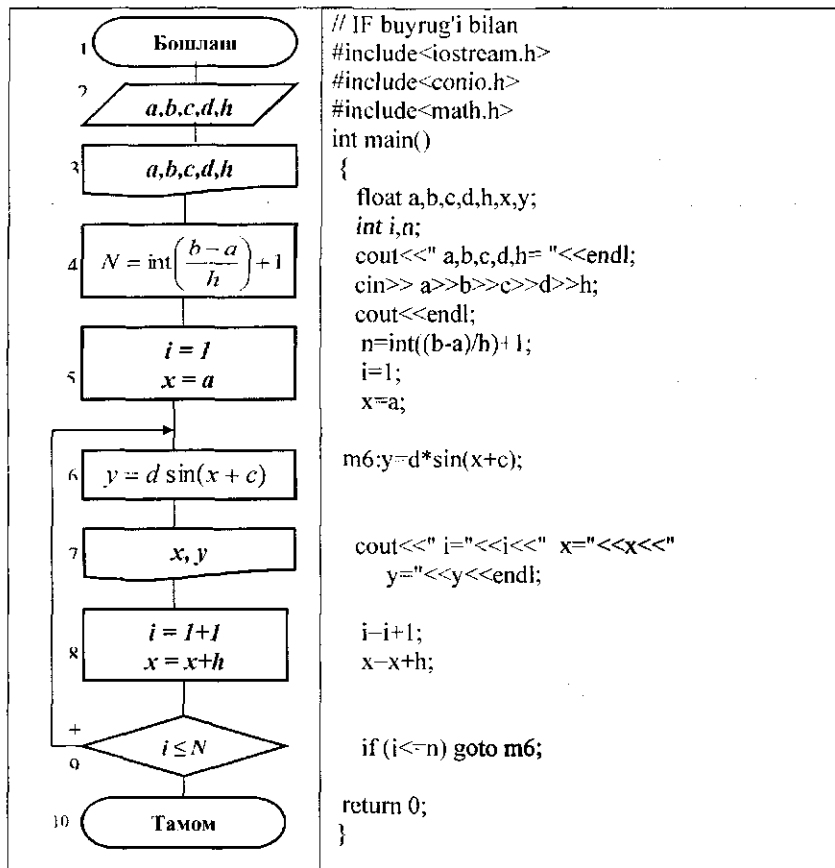 1 Бошлаш
2 a,b,c,d,h
3 a,b,c,d,h
4 N = int((b − a)/h) + 1
5 i = 1
x = a
6 y = d sin(x + c)
7 x, y
8 i = 1+1
x = x+h
+
9 i ≤ N
10 Тамом
// IF buyrug'i bilan
#include<iostream.h>
#include<conio.h>
#include<math.h>
int main()
{
float a,b,c,d,h,x,y;
int i,n;
cout<<" a,b,c,d,h= "<<endl;
cin>> a>>b>>c>>d>>h;
cout<<endl;
n=int((b-a)/h)+1;
i=1;
x=a;
m6:y=d*sin(x+c);
cout<<" i="<<i<<" x="<<x<<"
y="<<y<<endl;
i–i+1;
x–x+h;
if (i<=n) goto m6;
return 0;
}